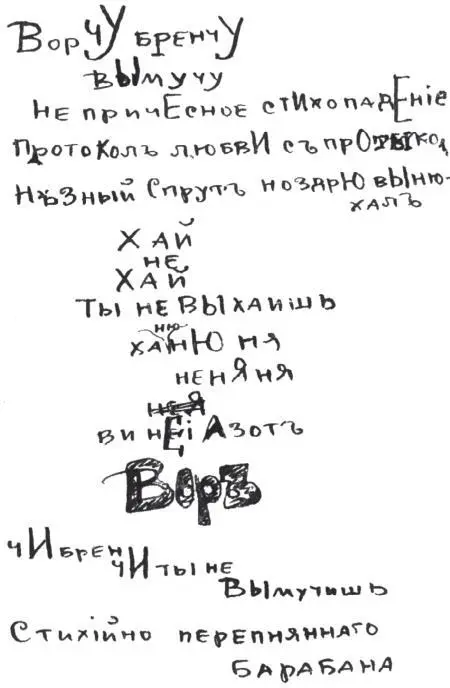 ВорЧУ бренчУ
вЫмучу
не причЕсное стИхопадЕніе
ПротоКолъ любвИ съ прОтыкод
Нѣзный Спрутъ ноздрЮ вЫню-
халъ
ХАЙ
НЕ
ХАЙ
Ты не вЫхаишь
ню
ня
неняня
винЕіАзотъ
Воръ
чИбрен
чИ ты не
вЫмучишь
Стихійно перепняннаго
барабана